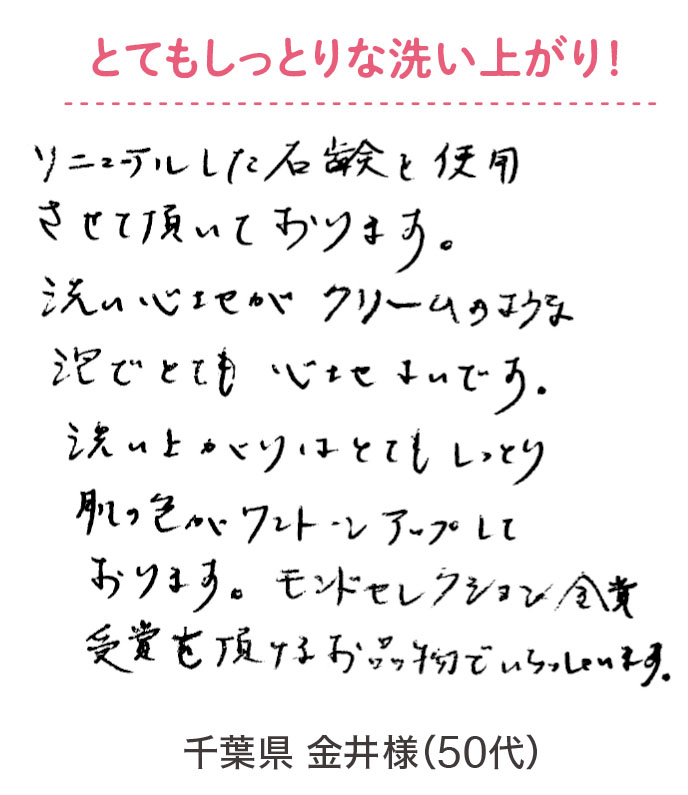 とてもしっとりな洗い上がり!
リニューアルした石鹸を使用
させて頂いております。
洗い心地がクリームのような
泡でとても心地よいです。
洗い上がりはとてもしっとり
肌の色がワントーンアップして
おります。モンドセレクション金賞
受賞を頂けるお品物でいらっしゃいます。
千葉県 金井様(50代)